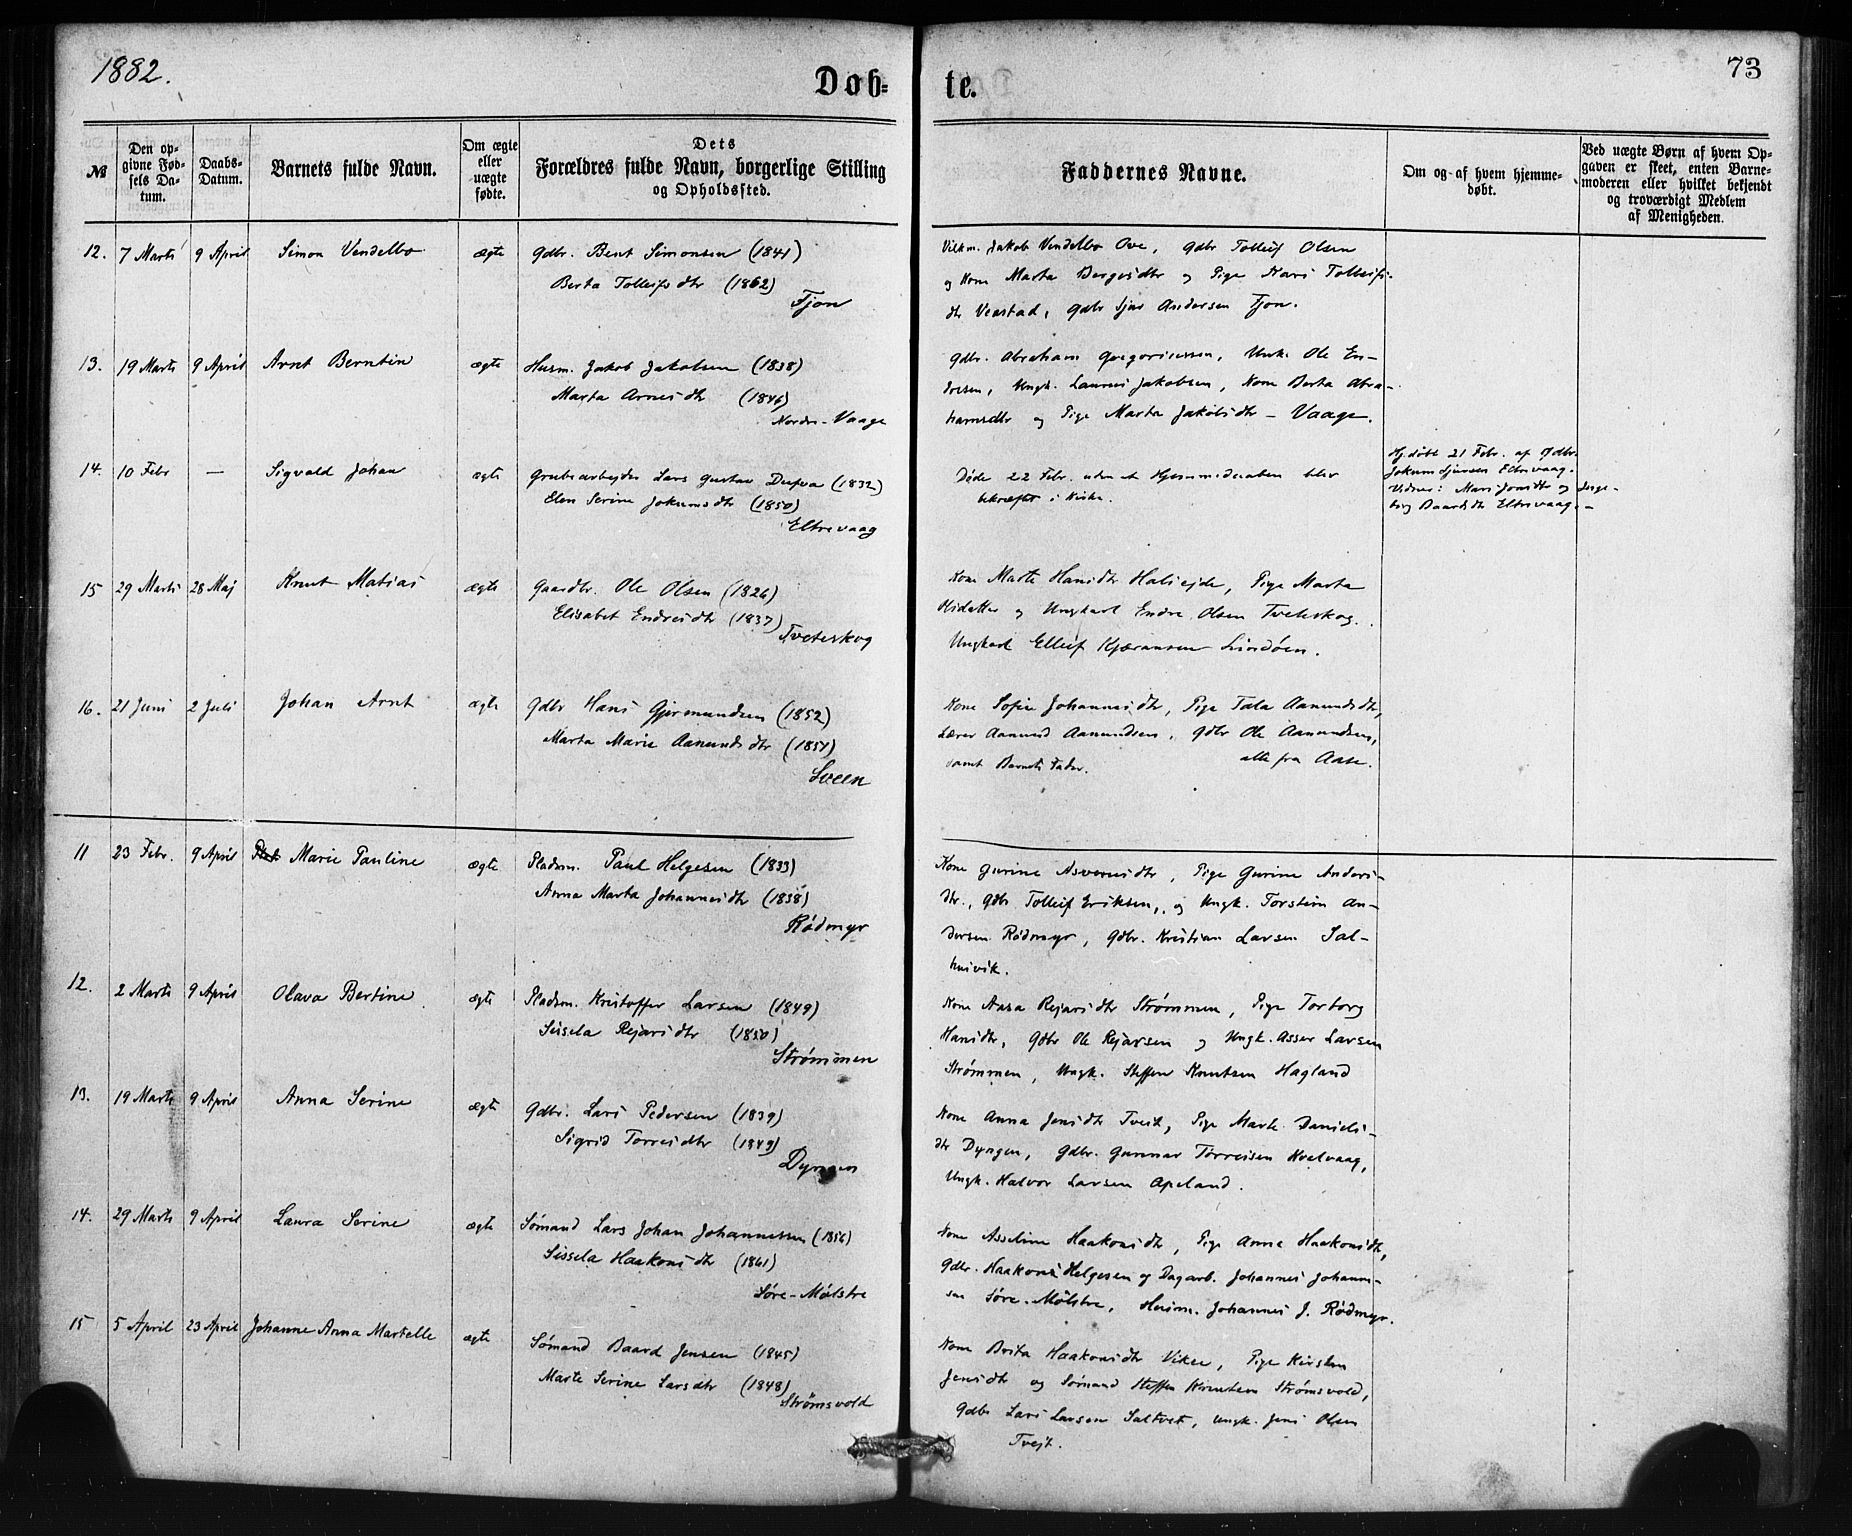 1882.
Dob=
te.
73
№
Den op-
givne Fød-
sels Da-
tum.
Daabs-
Datum.
Barnets fulde Navn.
Om ægte
eller
uægte
fødte.
Dets
Forældres fulde Navn, borgerlige Stilling
og Opholdssted.
Faddernes Navne.
Om og af hvem hjemme-
døbt.
Ved uægte Børn af hvem Op-
gaven er skeet, enten Barne-
moderen eller hvilket bekjendt
og troværdigt Medlem
af Menigheden.
12. 7 Marts 9 April Simon Vendelbo ægte Gdbr. Bent Simonsen (1841)
Berta Tolleifsdtr (1862)
Fjon
Jakob Vendelbo Ove, Gdbr Tolleif Olsen
og Kone Marta Borgesdtr og Pige Kari Tolleifs-
dtr Veastad, Gdbr Sjur Andersen Fjon.
13. 19 Marts 9 April Arnt Berntin ægte Husm. Jakob Jakobsen (1838)
Marta Arnesdtr (1846)
Nordre-Vaage
Gdbr. Abraham Gregoriussen, Ole En-
dresen, Ungk. Laurits Jakobsen, Kone Berta Abra-
hamsdtr og Pige Marta Jakobsdtr - Vaage.
14. 10 Febr — Sigvald Johan ægte Grubearbejder Lars Gustav Dufva (1832)
Elen Serine Jokumsdtr (1850)
Eltrevaag
Døde 22 Febr. uden at Hjemmedaaben blev
bekræftet i Kirke.
Hj.døbt 21 Febr. af Gdbr.
Jokum Sjursen Eltrevaag.
Vidner: Mari Jonsdtr og Inge-
borg Baardsdtr Eltrevaag.-
15 29 Marts 28 Maj Knut Matias ægte Gaardbr. Ole Olsen (1826)
Elisabet Endresdtr (1837)
Tveteskog
Kone Marte Hansdtr Halsejde, Pige Marta
Olsdatter og Ungkarl Endre Olsen Tveteskog.
Ungkarl Elleif Kjæransen Lindøen.
16. 21 Juni 2 Juli Johan Arnt ægte Gdbr Hans Gjermundsen (1852)
Marta Marie Aamundsdtr (1851)
Sveen
Kone Sofie Johannesdtr, Pige Tala Aamundsdtr,
Lærer Aamund Aamundsen, Gdbr Ole Aamundsen,
samt Barnets Fader. alle fra Aase.
11 23 Febr. 9 April Marie Pauline ægte Pladsm. Paul Helgesen (1833)
Anna Marta Johannesdtr (1838)
Rødmyr
Kone Gurine Asversdtr, Pige Gurine Anders-
dtr., Gdbr Tolleif Eriksen, og Ungk. Torstein An-
dersen Rødmyr, Gdbr. Kristian Larsen Sal-
husvik.
12. 2 Marts 9 April Olava Bertine ægte Pladsm. Kristoffer Larsen (1849)
Sissela Rejarsdtr (1850)
Strømmen
Kone Aasa Rejarsdtr Strømmen, Pige Torborg
Hansdtr, Gdbr Ole Rejarsen og Ungk. Asser Larsen
Strømmen, Ungk. Steffen Knutsen Hagland
13. 19 Marts 9 April Anna Serine ægte Gdbr. Lars Pedersen (1839)
Sigrid Torresdtr (1849)
Dyngen
Kone Anna Jensdtr Tveit, Pige Marte Daniels-
dtr Dyngen, Gdbr. Gunnar Torreisen Kvalvaag,
Ungk. Halvor Larsen Apeland.
14. 29 Marts 9 April Laura Serine ægte Sømand Lars Johan Johannessen (1856)
Sissela Haakonsdtr (1861)
Søre-Mølstre
Kone Asseline Haakonsdtr, Pige Anna Haakonsdtr,
Gdbr. Haakon Helgesen og Dagarb. Johannes Johann-
sen Søre-Mølstre, Husm. Johannes J. Rødmyr.
15 5 April 23 April Johanne Anna Martelle ægte Sømand Baard Jensen (1845)
Marte Serine Larsdtr (1848)
Strømsvold
Kone Brita Haakonsdtr Vikse, Pige Kirsten
Jensdtr og Sømand Steffen Knutsen Strømsvold,
Gdbr Lars Larsen Saltvet, Ungk. Jens Olsen
Tvejt.